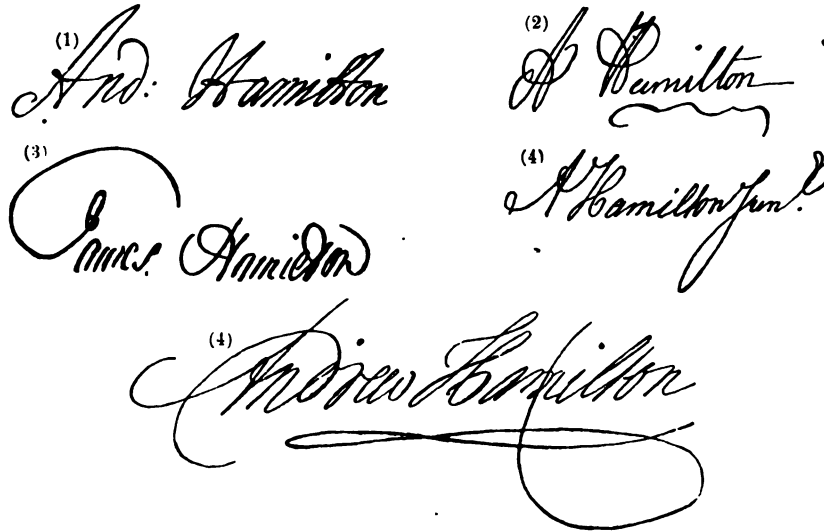 (1) And: Hamilton
(2) A Hamilton
(3) James Hamilton
(4) A Hamilton Junr.
(4) Andrew Hamilton